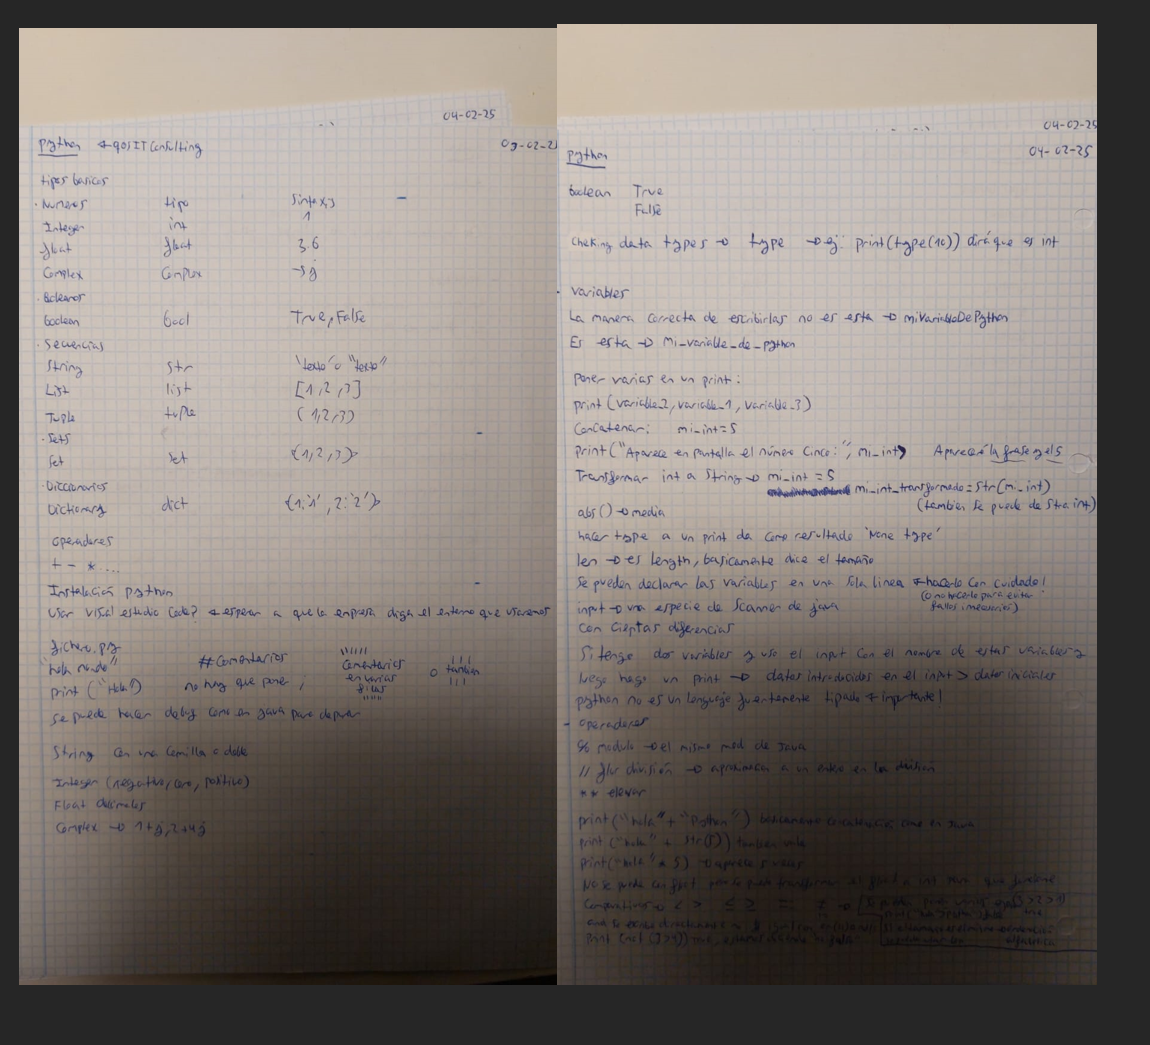 04-02-25
python
tipos basicos
· Numeros tipo Sintaxis
Integer int 1
float float 3.6
Complex Complex
· Boleanos
boolean bool True, False
· Secuencias
String str 'texto' o "texto"
List list [1,2,3]
Tuple tuple (1,2,3)
· Sets
Set set {1,2,3}
· Diccionarios
Dictionary dict {1:'1', 2:'2'}
operadores
+ - * ....
Instalación python
Usar Visal estudio Code? esperar a que la empresa diga el entorno que usaremos
fichero.py
"hola mundo" # Comentarios """ Comentarios en varias filas """ o ''' tambien '''
print ("Hola") no hay que poner ;
se puede hacer debug como en java para depurar
String con una Comilla o doble
Integer (negativo, cero, positivo)
Float decimales
Complex → 1+j, 2+4j
04-02-25
04-02-25
python
boolean True
False
Cheking data types → type → ej: print(type(10)) dirá que es int
Variables
La manera correcta de escribirlas no es esta → miVariableDePython
Es esta → Mi_variable_de_python
Poner varias en un print:
print (variable_2, variable_1, variable_3)
Concatenar: mi_int=5
print("Aparece en pantalla el número cinco:", mi_int) Aparecerá la frase y el 5
Transformar int a String → mi_int = 5
mi_int_transformado = Str(mi_int)
(tambien se puede de Str a int)
abs() → media
hacer type a un print da como resultado 'None type'
len → es length, basicamente dice el tamaño
Se pueden declarar las variables en una sola linea hacerlo con cuidado!
(o no hacerlo para evitar
fallos innecesarios)
input → una especie de Scanner de java
con ciertas diferencias
Si tengo dos variables y uso el input con el nombre de estas variables y
luego hago un print → datos introducidos en el input > datos iniciales
python no es un lenguaje fuertemente tipado importante!
- operadores
% modulo → el mismo mod de Java
// division → aproximar a un entero en la division
** elevar
print("hola" + "Python") concatenaria como en Java
print ("hola" + Str(5)) tambien vale
print("hola" * 5) → aparece 5 veces
No se puede con float
Comparativos → < > ≤ ≥